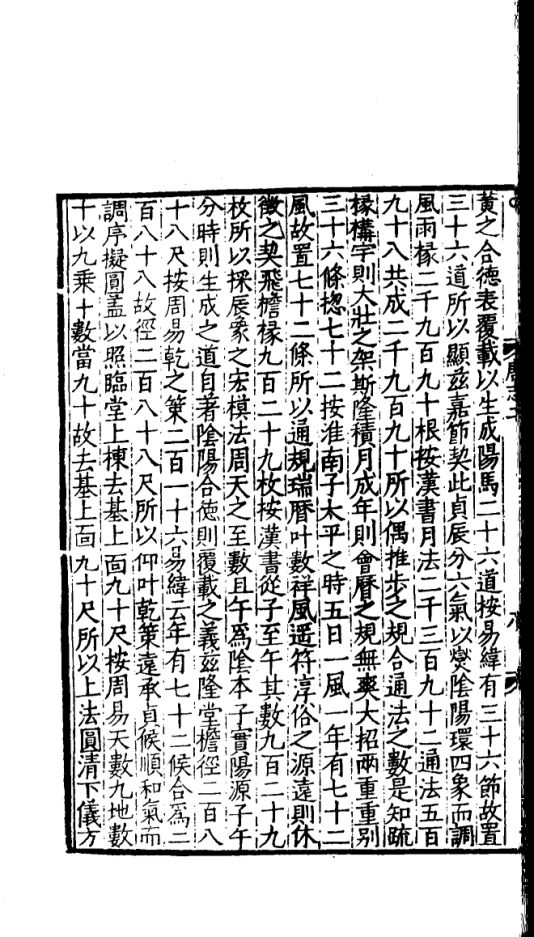 黃之合德表覆載以生成陽馬二十六道按易緯有三十六節故置
三十六道所以顯茲嘉節契此貞辰分六氣以爕陰陽環四象而調
風雨椽二千九百九十根按漢書月法二千三百九十二通法五百
九十八共成二千九百九十所以偶推步之規合通法之數是知疏
椽構宇則大壯之架斯隆積月成年則會曆之規無爽大招兩重重別
三十六條揔七十二按淮南子太平之時五日一風一年有七十二
風故置七十二條所以通規瑞曆叶數祥風遥符淳俗之源遠則休
徵之契飛檐椽九百二十九枚按漢書從子至午其數九百二十九
枚所以採辰象之宏模法周天之至數且午爲陰本子實陽源子午
分時則生成之道自著陰陽合徳則覆載之義茲隆堂檐徑二百八
十八尺按周易乾之策二百一十六易緯云年有七十二候合爲二
百八十八故徑二百八十八尺所以仰叶乾策遠承貞候順和氣而
調序擬圓盖以照臨堂上棟去基上面九十尺按周易天數九地數
十以九乗十數當九十故去基上面九十尺所以上法圓清下儀方